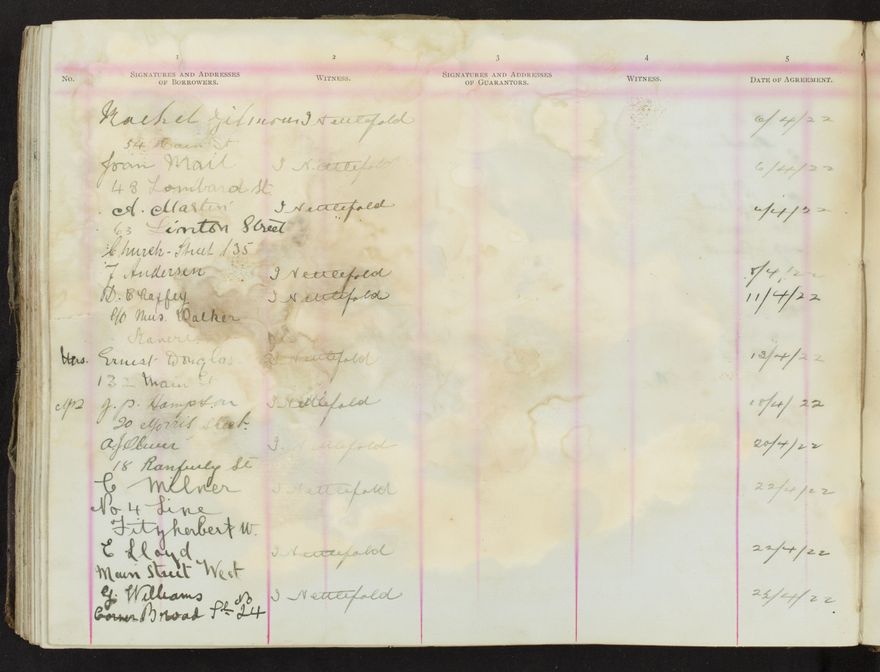 1 2 3 4 5
No. SIGNATURES AND ADDRESSES OF BORROWERS. WITNESS. SIGNATURES AND ADDRESSES OF GUARANTORS. WITNESS. DATE OF AGREEMENT.
Rachel Gilmour J Nettlefold 6/4/22
54 Main St
Joan Mail J Nettlefold 6/4/22
48 Lombard St.
A. Martin J Nettlefold /4/22
63 Linton Street
Church Street 135
J Andersen J Nettlefold 8/4/22
D. J Nettlefold 11/4/22
C/o Mrs. Walker
Mrs. Ernest Douglas J Nettlefold 13/4/22
132 Main St
J. P. Hampson J Nettlefold 18/4/22
20 Morris Street.
A J Oliver J Nettlefold 20/4/22
18 Ranfurly St
C Milner J Nettlefold 22/4/22
No 4 Line
Fitzherbert W.
C Lloyd J Nettlefold 22/4/22
Main Street West
G. Williams J Nettlefold 22/4/22
Corner Broad St